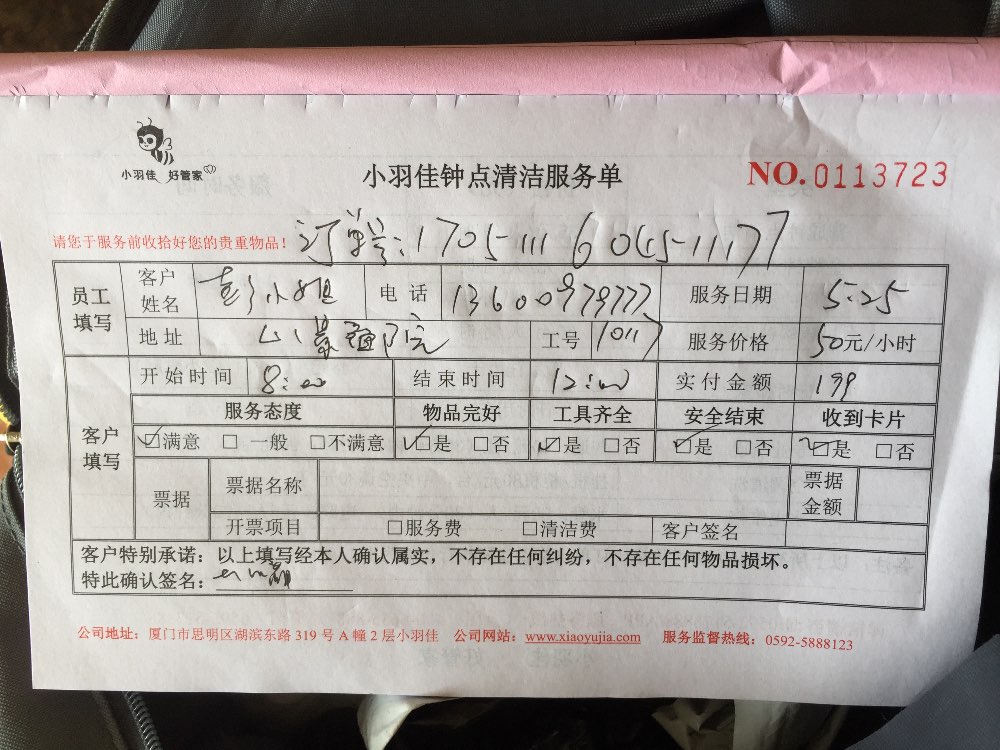 小羽佳 好管家
小羽佳钟点清洁服务单
NO.0113723
请您于服务前收拾好您的贵重物品！
订单号：
员工填写 客户姓名 彭小姐 电话 13600979777 服务日期 5.25
地址 工号 10117 服务价格 50元/小时
客户填写 开始时间 8:00 结束时间 12:00 实付金额 199
服务态度 物品完好 工具齐全 安全结束 收到卡片
☑满意 □一般 □不满意 ☑是 □否 ☑是 □否 ☑是 □否 ☑是 □否
票据 票据名称 票据金额
开票项目 □服务费 □清洁费 客户签名
客户特别承诺：以上填写经本人确认属实，不存在任何纠纷，不存在任何物品损坏。
特此确认签名：
公司地址：厦门市思明区湖滨东路319号A幢2层小羽佳 公司网站：www.xiaoyujia.com 服务监督热线：0592-5888123